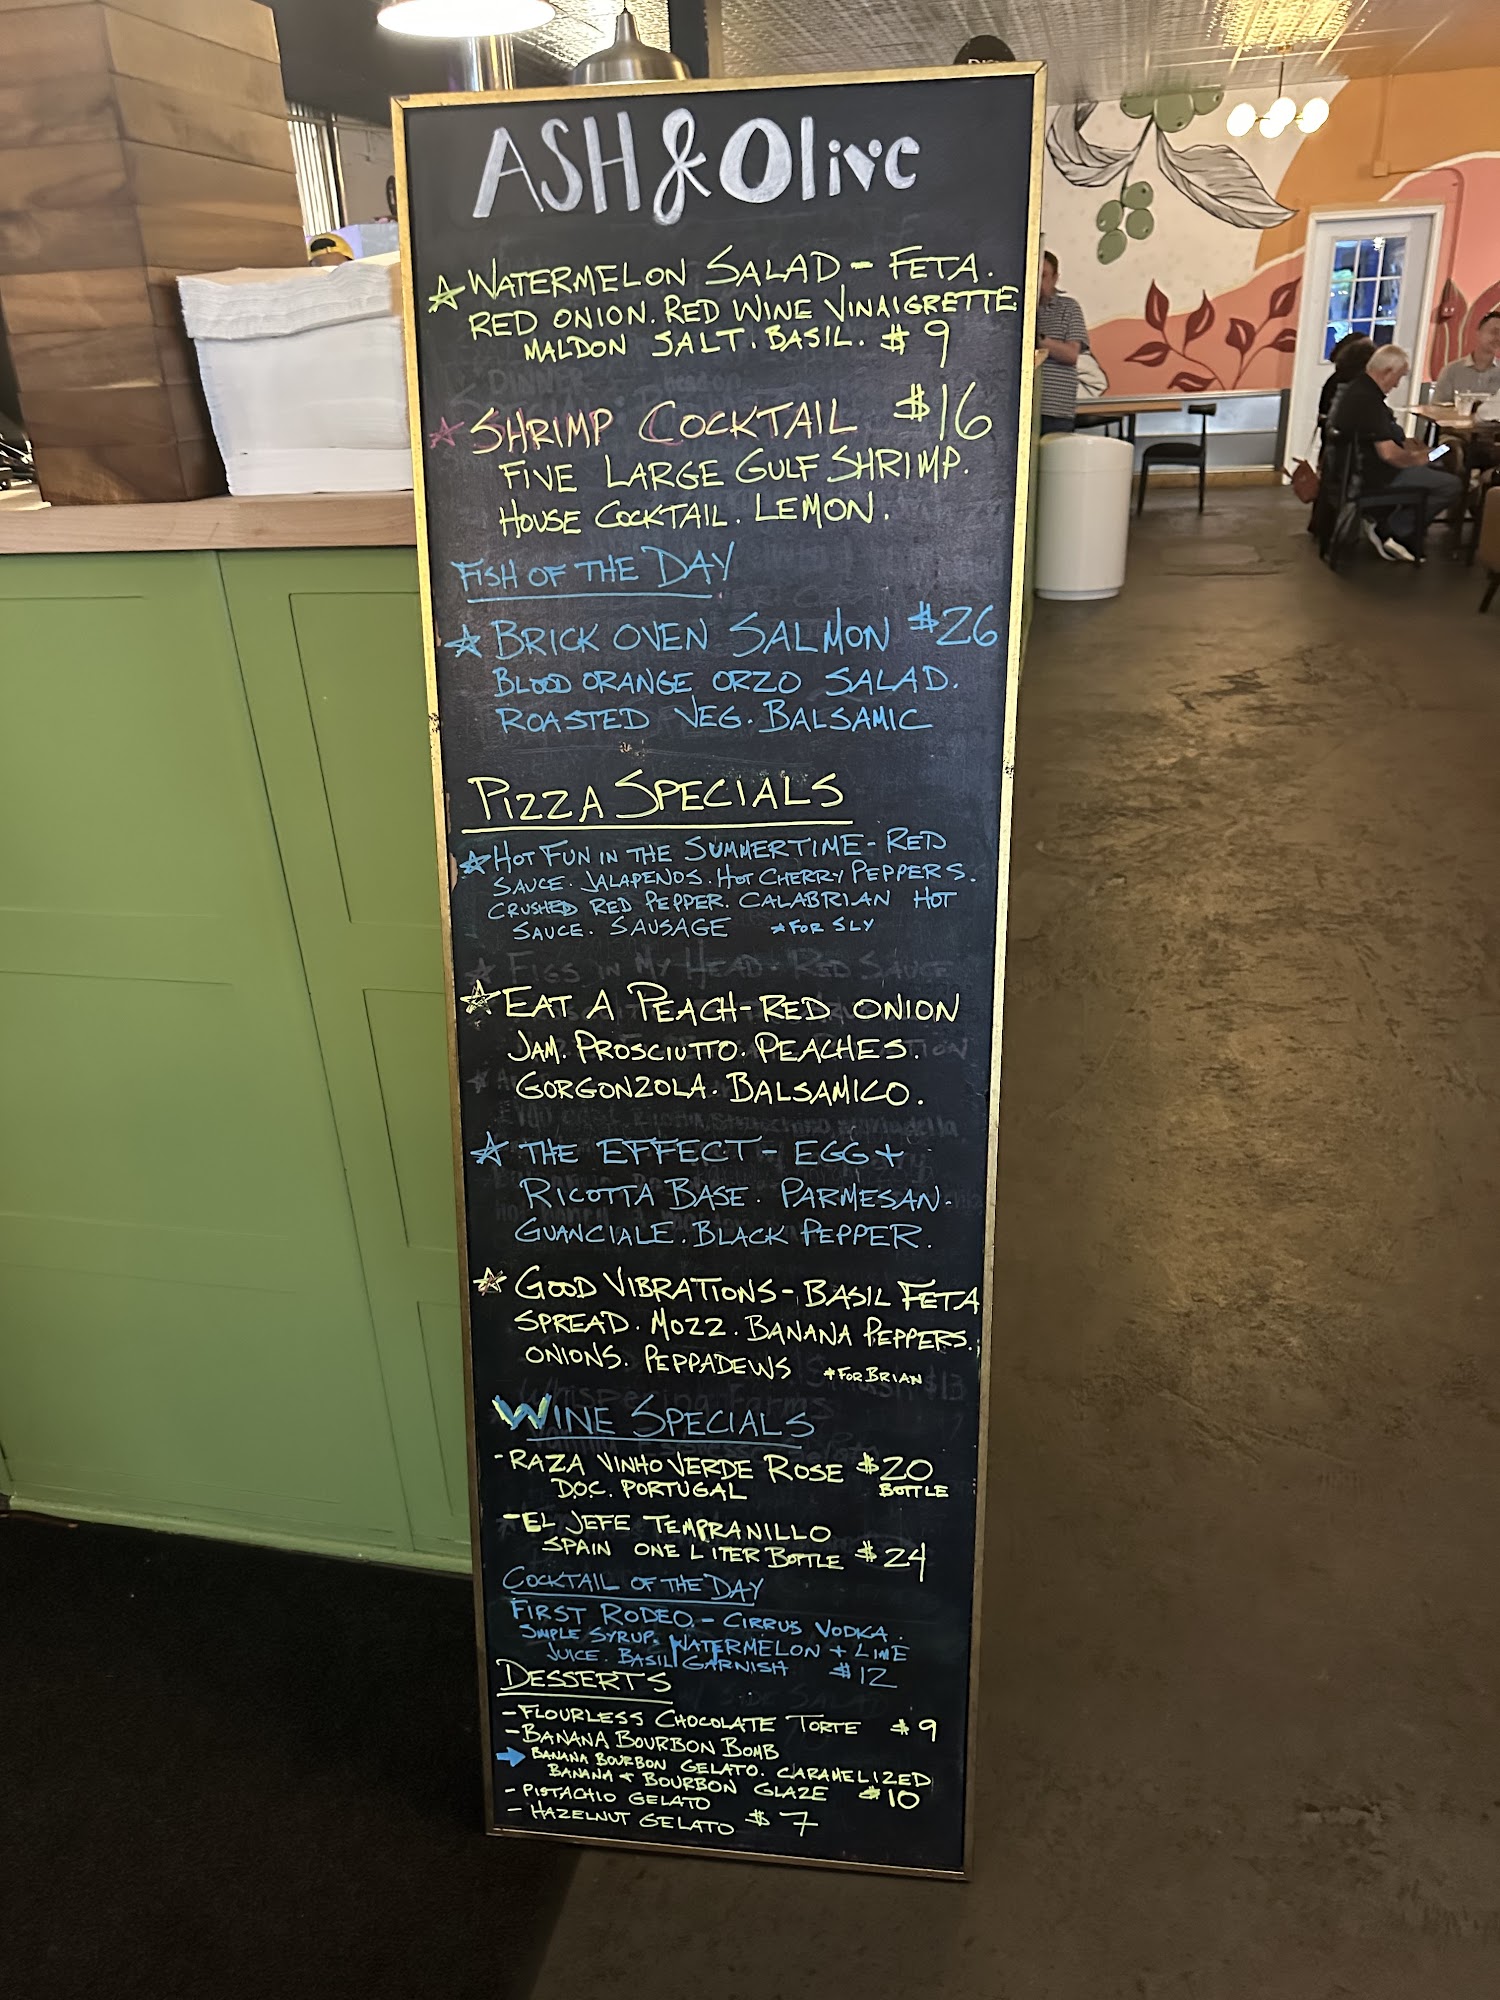 ASH & Olive
WATERMELON SALAD - FETA.
RED ONION. RED WINE VINAIGRETTE
MALDON SALT. BASIL. $9
SHRIMP COCKTAIL $16
FIVE LARGE GULF SHRIMP.
HOUSE COCKTAIL. LEMON.
FISH OF THE DAY
BRICK OVEN SALMON $26
BLOOD ORANGE ORZO SALAD.
ROASTED VEG. BALSAMIC
PIZZA SPECIALS
HOT FUN IN THE SUMMERTIME - RED
SAUCE. JALAPENOS. HOT CHERRY PEPPERS.
CRUSHED RED PEPPER. CALABRIAN HOT
SAUCE. SAUSAGE *FOR SLY
FIGS IN MY HEAD - RED SAUCE
EAT A PEACH - RED ONION
JAM. PROSCIUTTO. PEACHES.
GORGONZOLA. BALSAMICO.
THE EFFECT - EGG +
RICOTTA BASE. PARMESAN.
GUANCIALE. BLACK PEPPER.
GOOD VIBRATIONS - BASIL FETA
SPREAD. MOZZ. BANANA PEPPERS.
ONIONS. PEPPADEWS *FOR BRIAN
WINE SPECIALS
- RAZA VINHO VERDE ROSE $20
D.O.C. PORTUGAL BOTTLE
- EL JEFE TEMPRANILLO
SPAIN ONE LITER BOTTLE $24
COCKTAIL OF THE DAY
FIRST RODEO - CIRRUS VODKA.
SIMPLE SYRUP. WATERMELON + LIME
JUICE. BASIL GARNISH $12
DESSERTS
- FLOURLESS CHOCOLATE TORTE $9
- BANANA BOURBON BOMB
BANANA BOURBON GELATO. CARAMELIZED
BANANA + BOURBON GLAZE $10
- PISTACHIO GELATO
- HAZELNUT GELATO $7